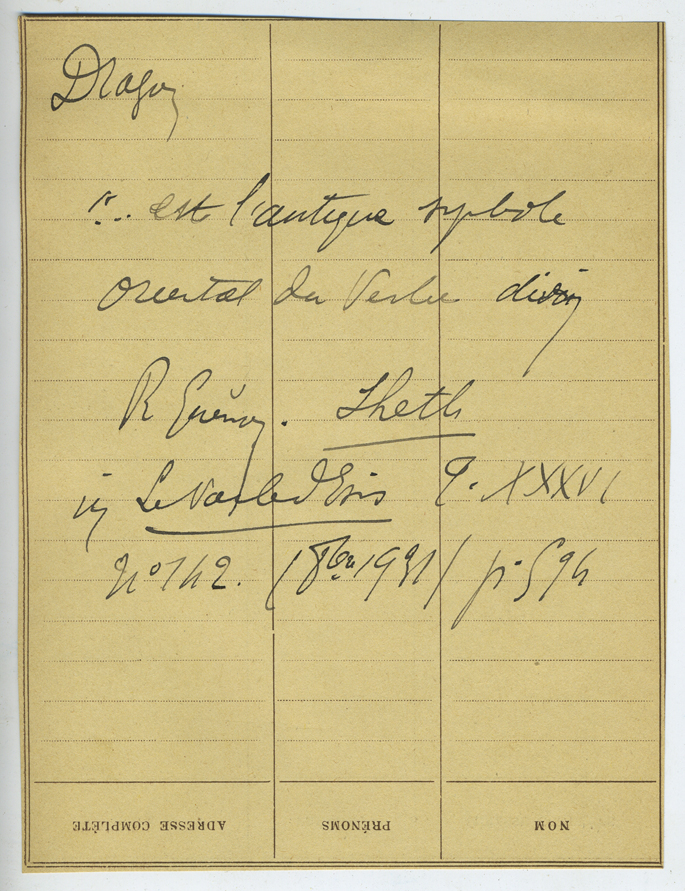 Dragon
"... est l'antique symbole
oriental du Verbe divin
R Guénon. Sheth
in Le Voile d'Isis T. XXXVI
n° 142. (8bre 1931) p. 594
ADRESSE COMPLÈTE PRÉNOMS NOM